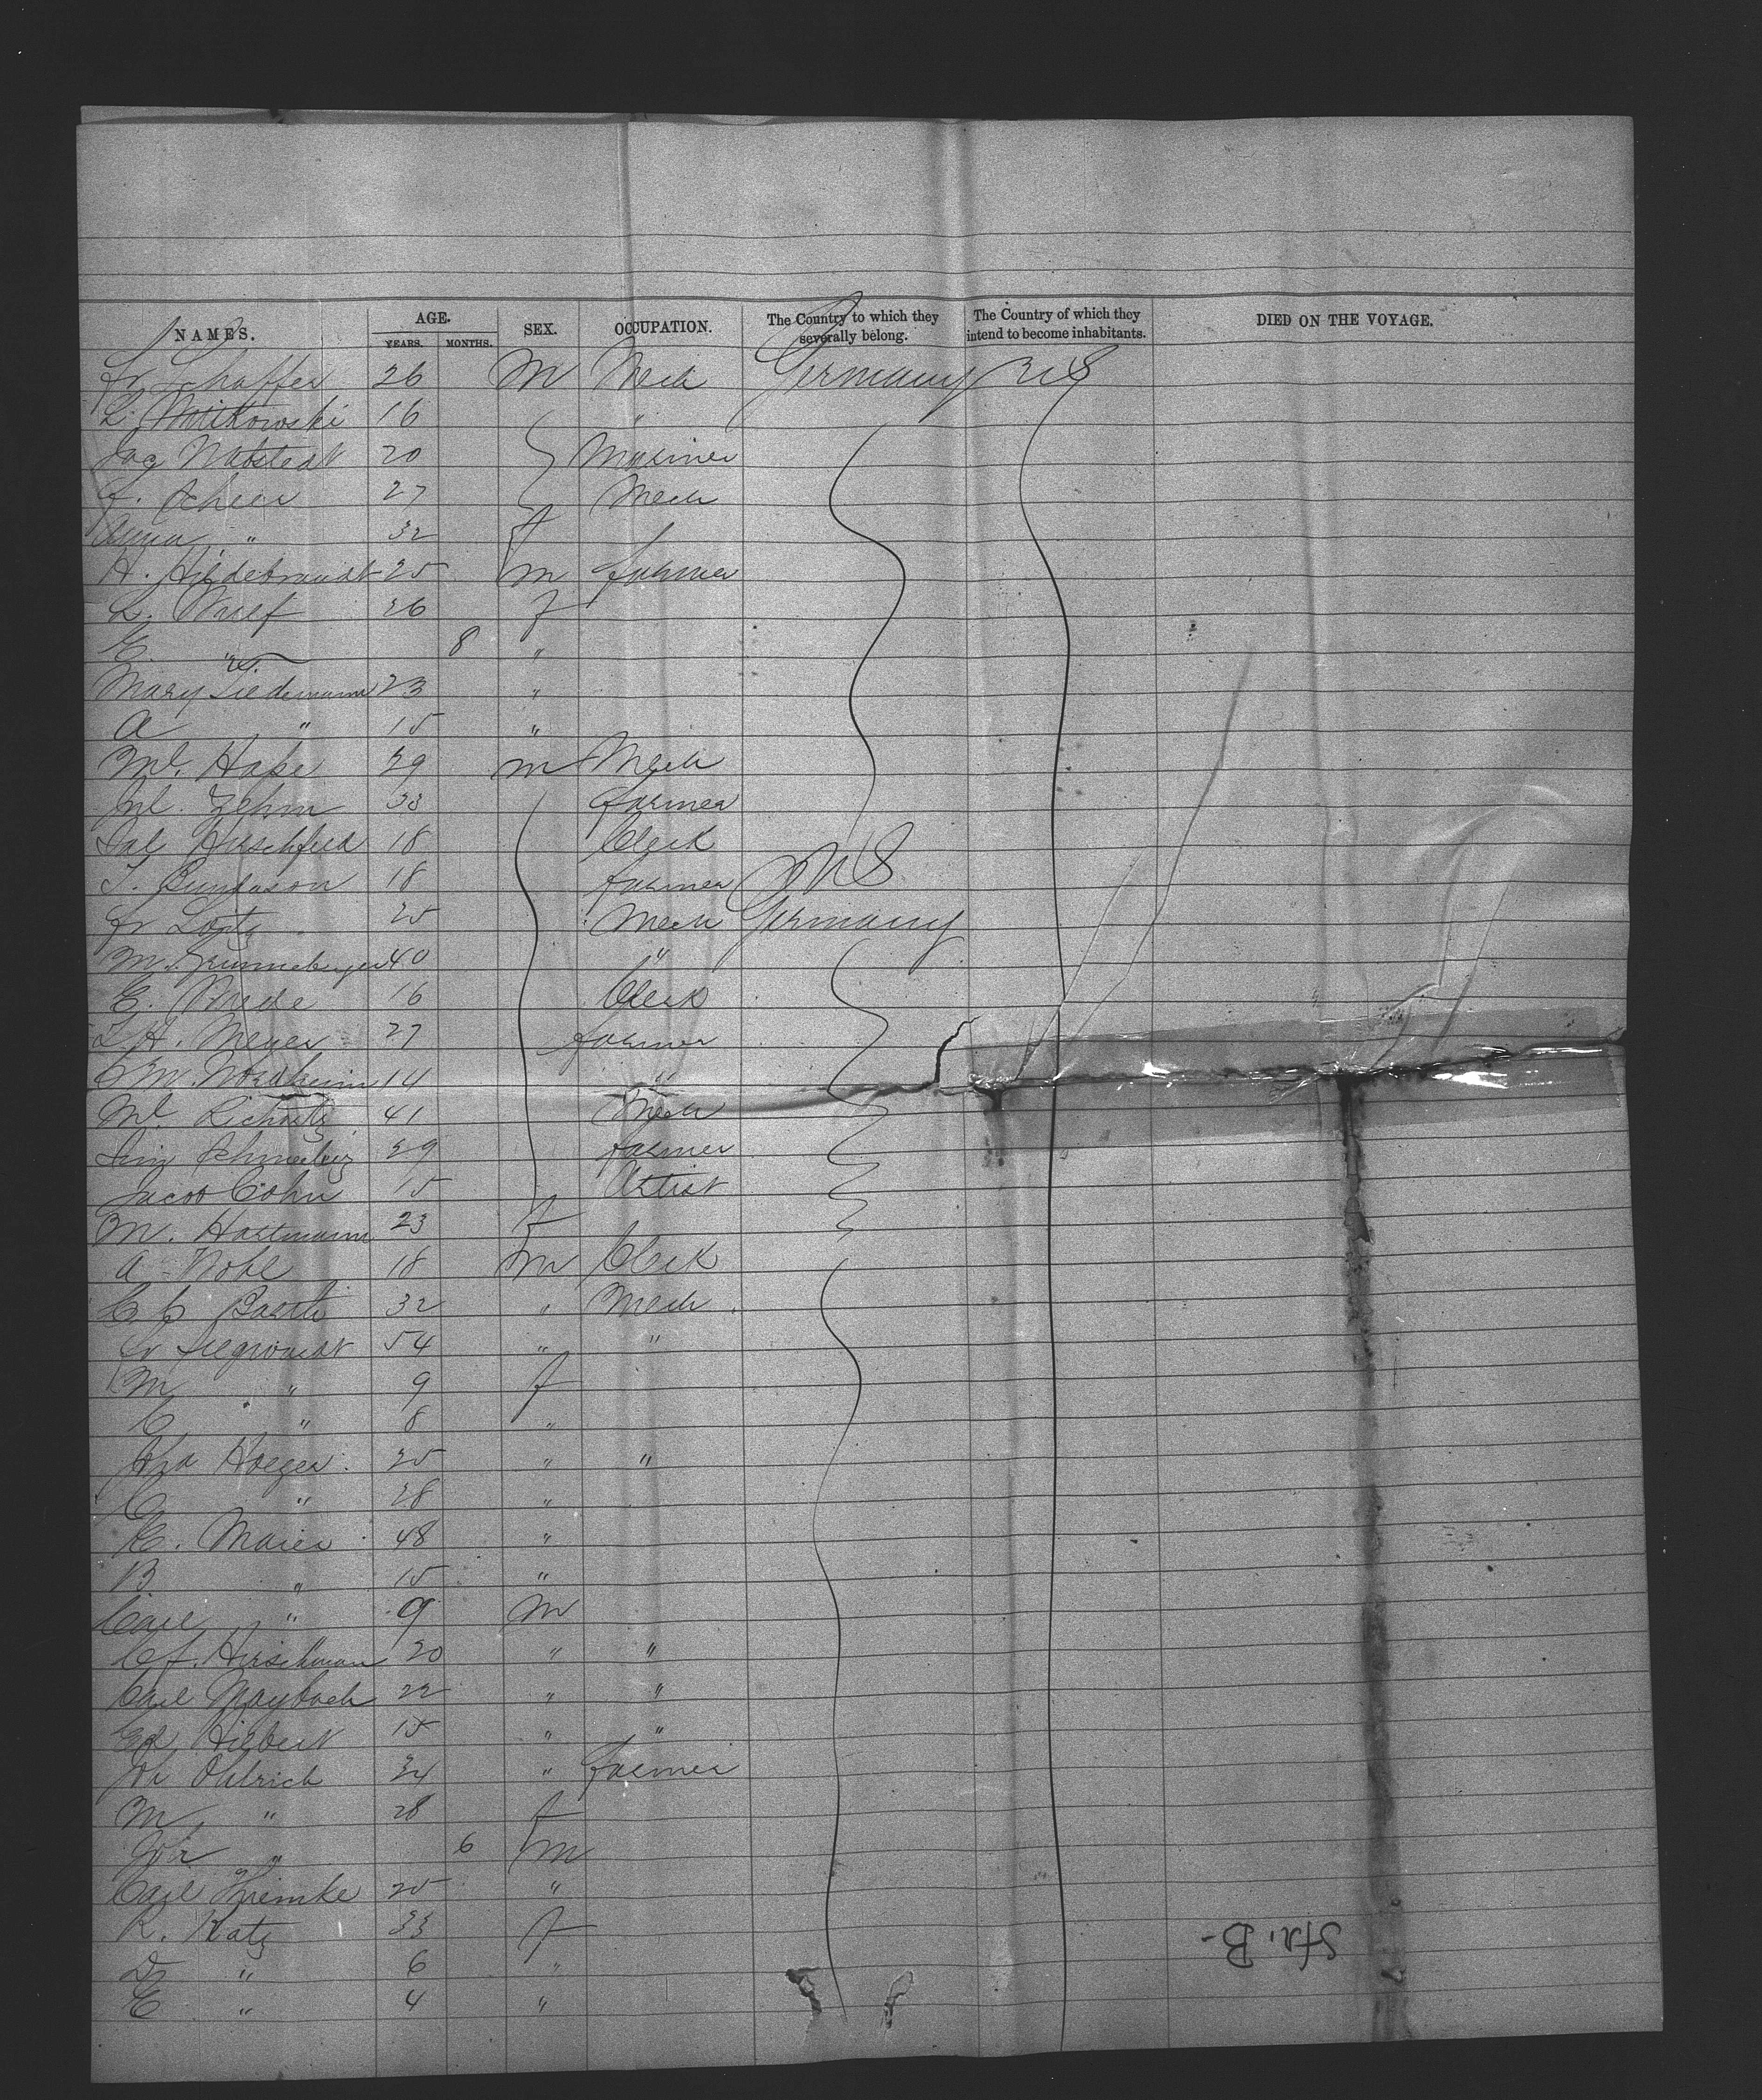 NAMES. AGE. YEARS. MONTHS. SEX. OCCUPATION. The Country to which they severally belong. The Country of which they intend to become inhabitants. DIED ON THE VOYAGE.
Fr Schaffer 26 M Mech Germany US
L. 16 "
Jog 20 Mariner
F. Scheer 27 Mech
Anna " 32 f
H. Hildebrandt 25 m farmer
L. 26 f
E. " 8 "
Mary Tiedemann 23 "
A " 15 "
Ml. Hake 29 m Mech
Ml. Zehm 33 farmer
Sal Hirschfeld 18 Clerk
T. 18 farmer US
Fr Lortz 25 Mech Germany
M. 40 "
E. Wrede 16 Clerk
L H. Meyer 27 farmer
C M. Nordheim 14 "
Ml. 41 Mech
29 farmer
Jacob Cohn 15 Artist
M. Hartmann 23 f
A Nohl 18 m Clerk
C C Barth 32 " Mech
Fr 54 " "
M " 9 f
C " 8 "
Hoeger 25 " "
C " 28 "
E. Maier 48 "
B " 15 "
Carl " 9 m
C f. Hirschman 20 " "
Carl Maybach 22 " "
Ed Hilbert 15 " "
Joh Ohlrich 34 " farmer
M " 28 f
Joh " 6 m
Carl Thiemke 25 "
R. Katz 33 f
D " 6 "
E " 4 "
Str. B-